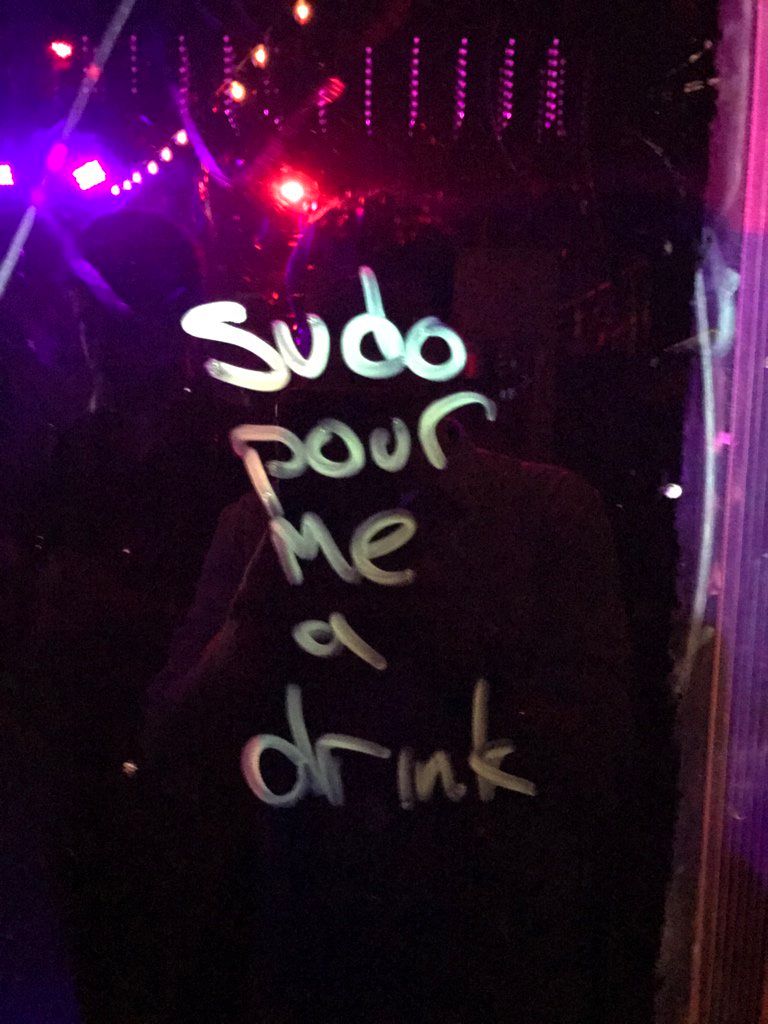 sudo
pour
me
a
drink